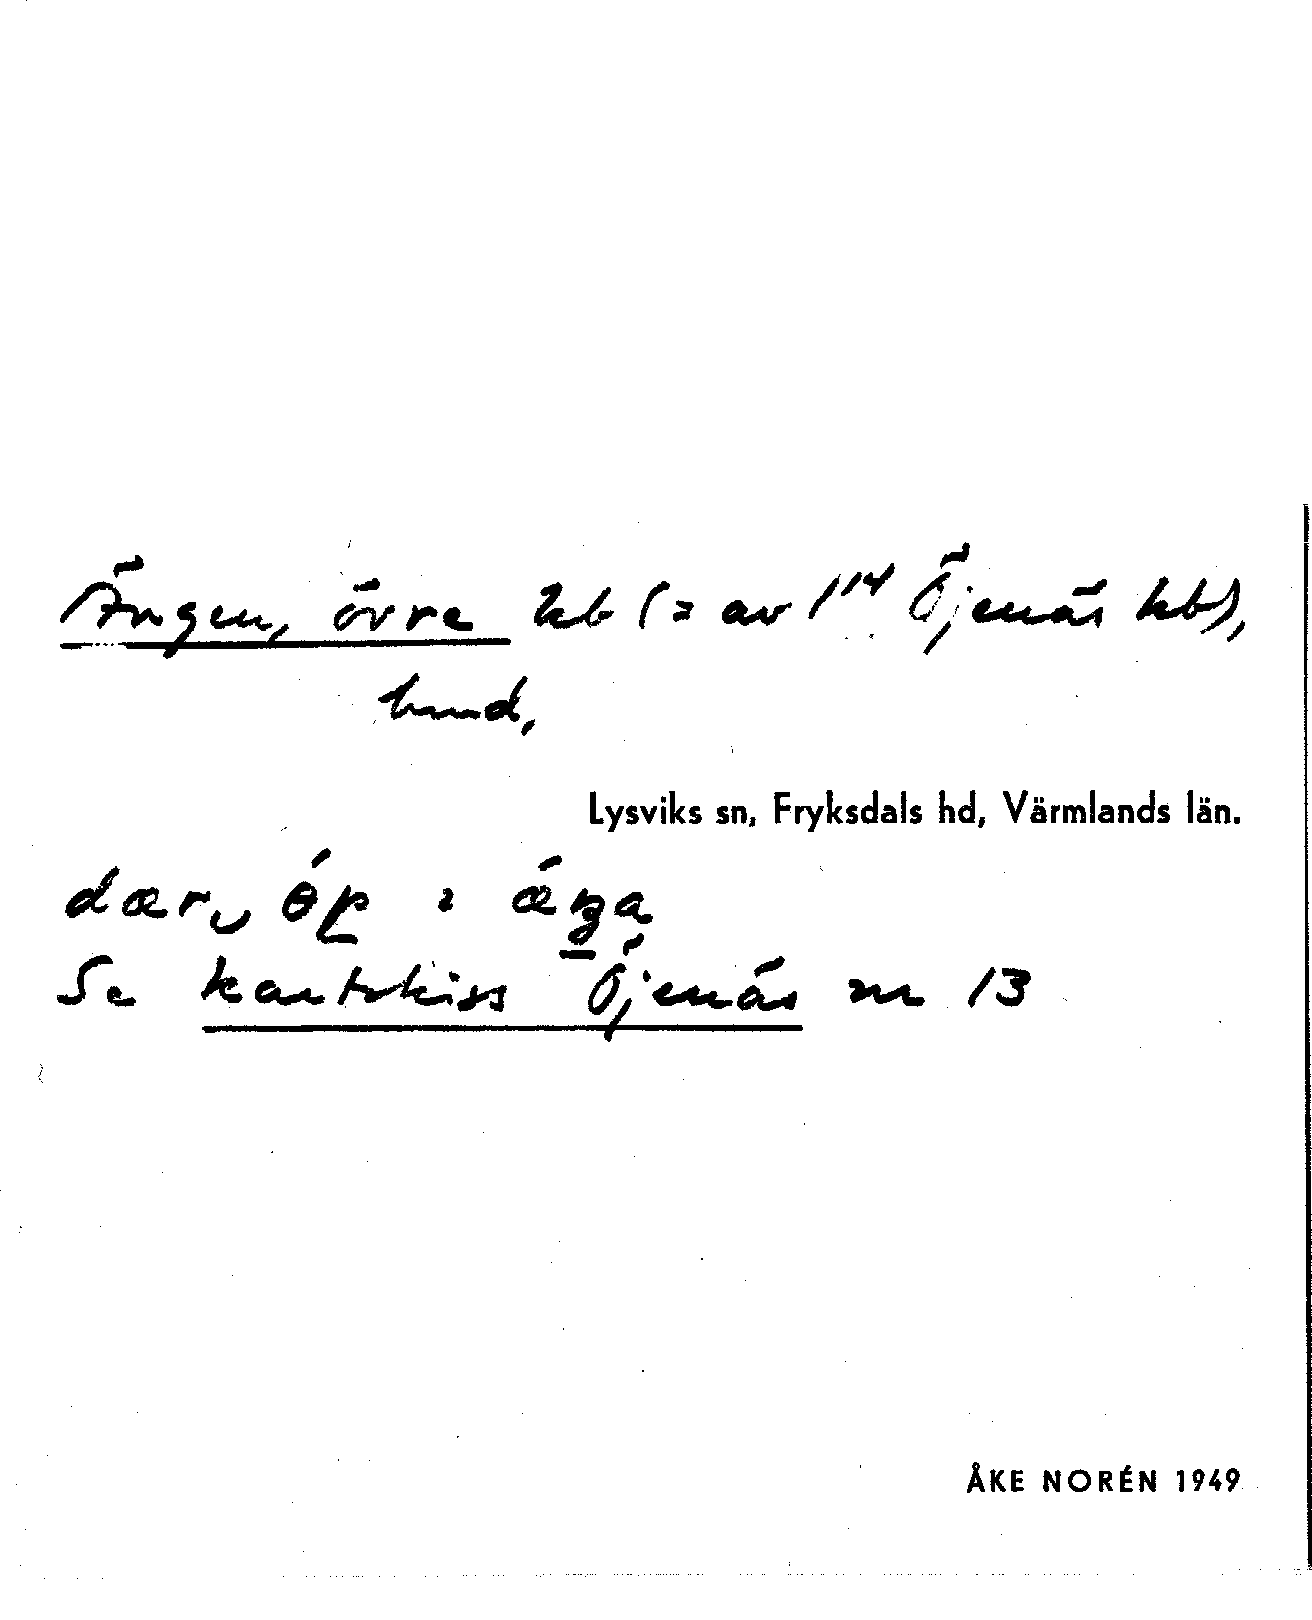 Ängen, övre hb (= av 1¹⁴ Öjenäs hb),
Lysviks sn, Fryksdals hd, Värmlands län.
Se kartskiss Öjenäs nr 13
ÅKE NORÉN 1949